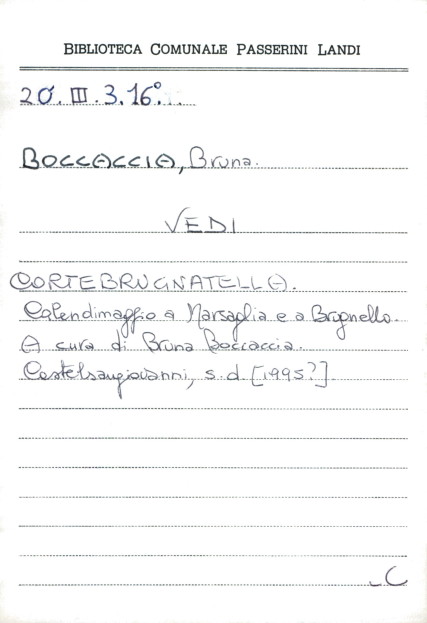 BIBLIOTECA COMUNALE PASSERINI LANDI
20. III. 3. 16°.
BOCCACCIA, Bruna.
VEDI
CORTEBRUGNATELLA.
Calendimaggio a Marsaglia e a Brugnello.
A cura di Bruna Boccaccia.
Castelsangiovanni, s. d. [1995?]
C